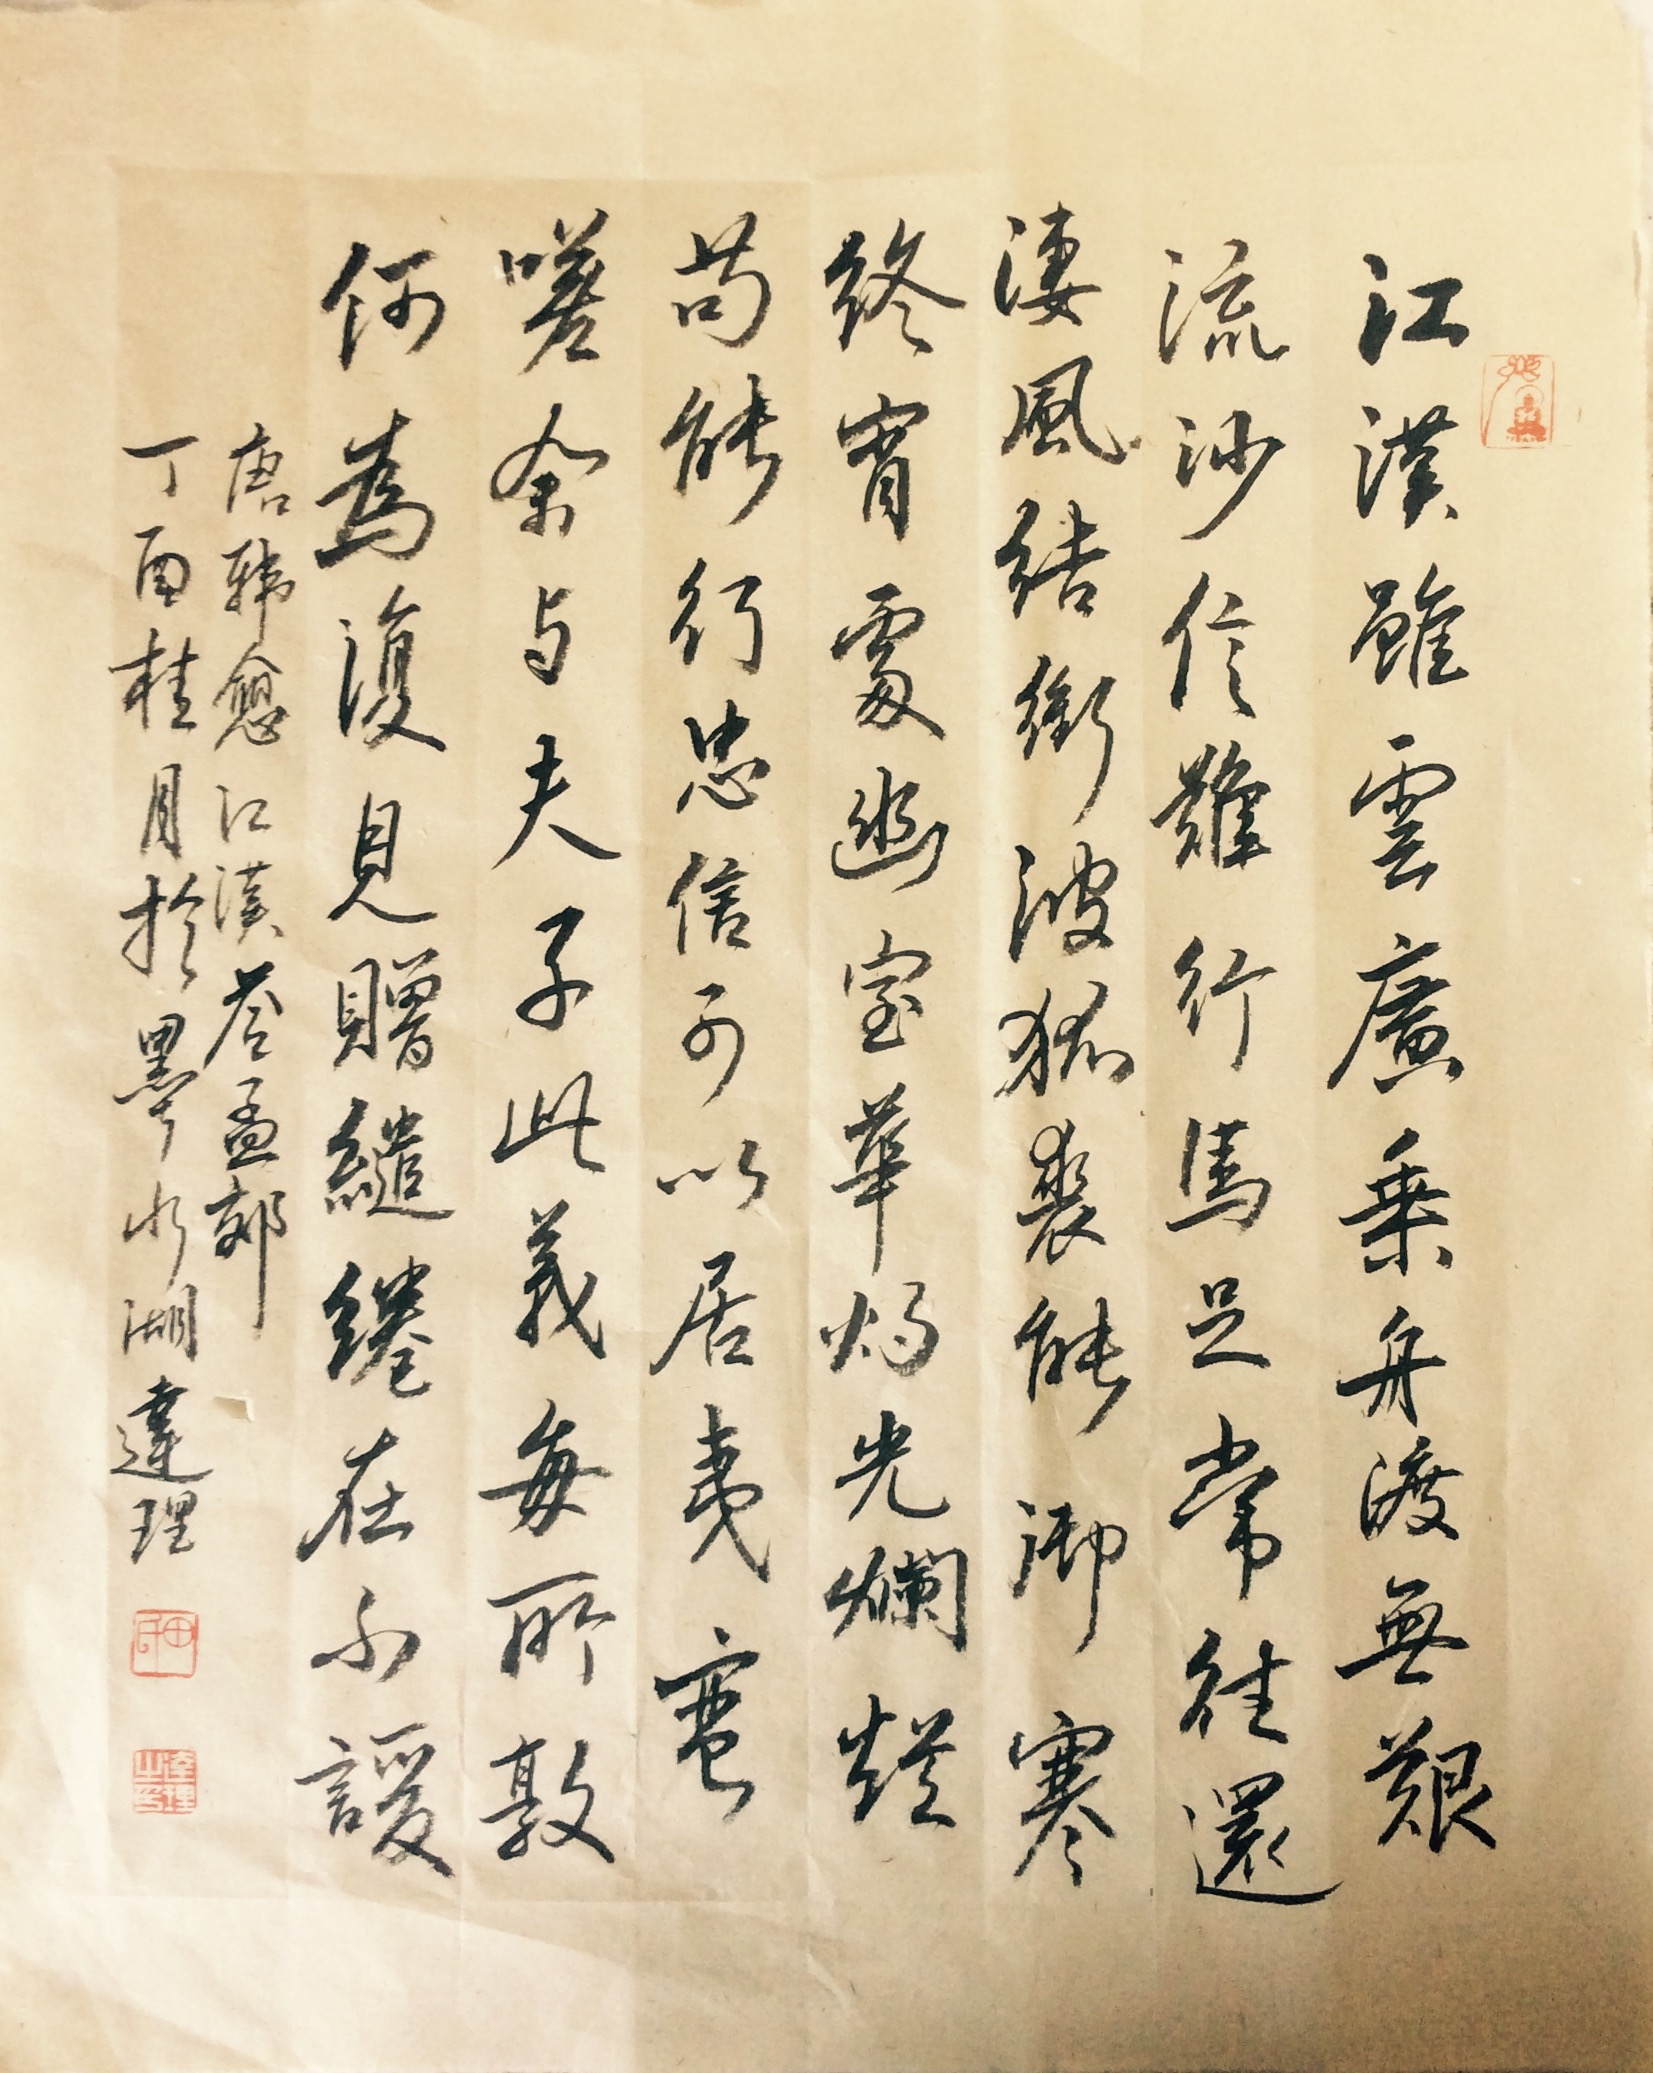 江漢雖雲廣乗舟渡無艱
流沙信難行馬足常往還
淒風結衝波狐裘能御寒
終宵處幽室華燭光爛爛
苟能行忠信可以居夷蠻
嗟余与夫子此義每所敦
何為復見贈繾綣在不諼
唐韩愈江漢答孟郊
丁酉桂月於墨水湖達理
達理之印